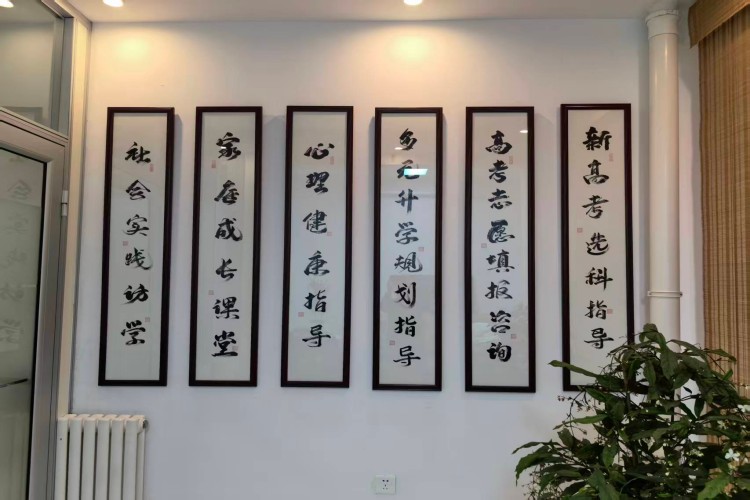 新高考选科指导
高考志愿填报咨询
多元升学规划指导
心理健康指导
家庭成长课堂
社会实践访学